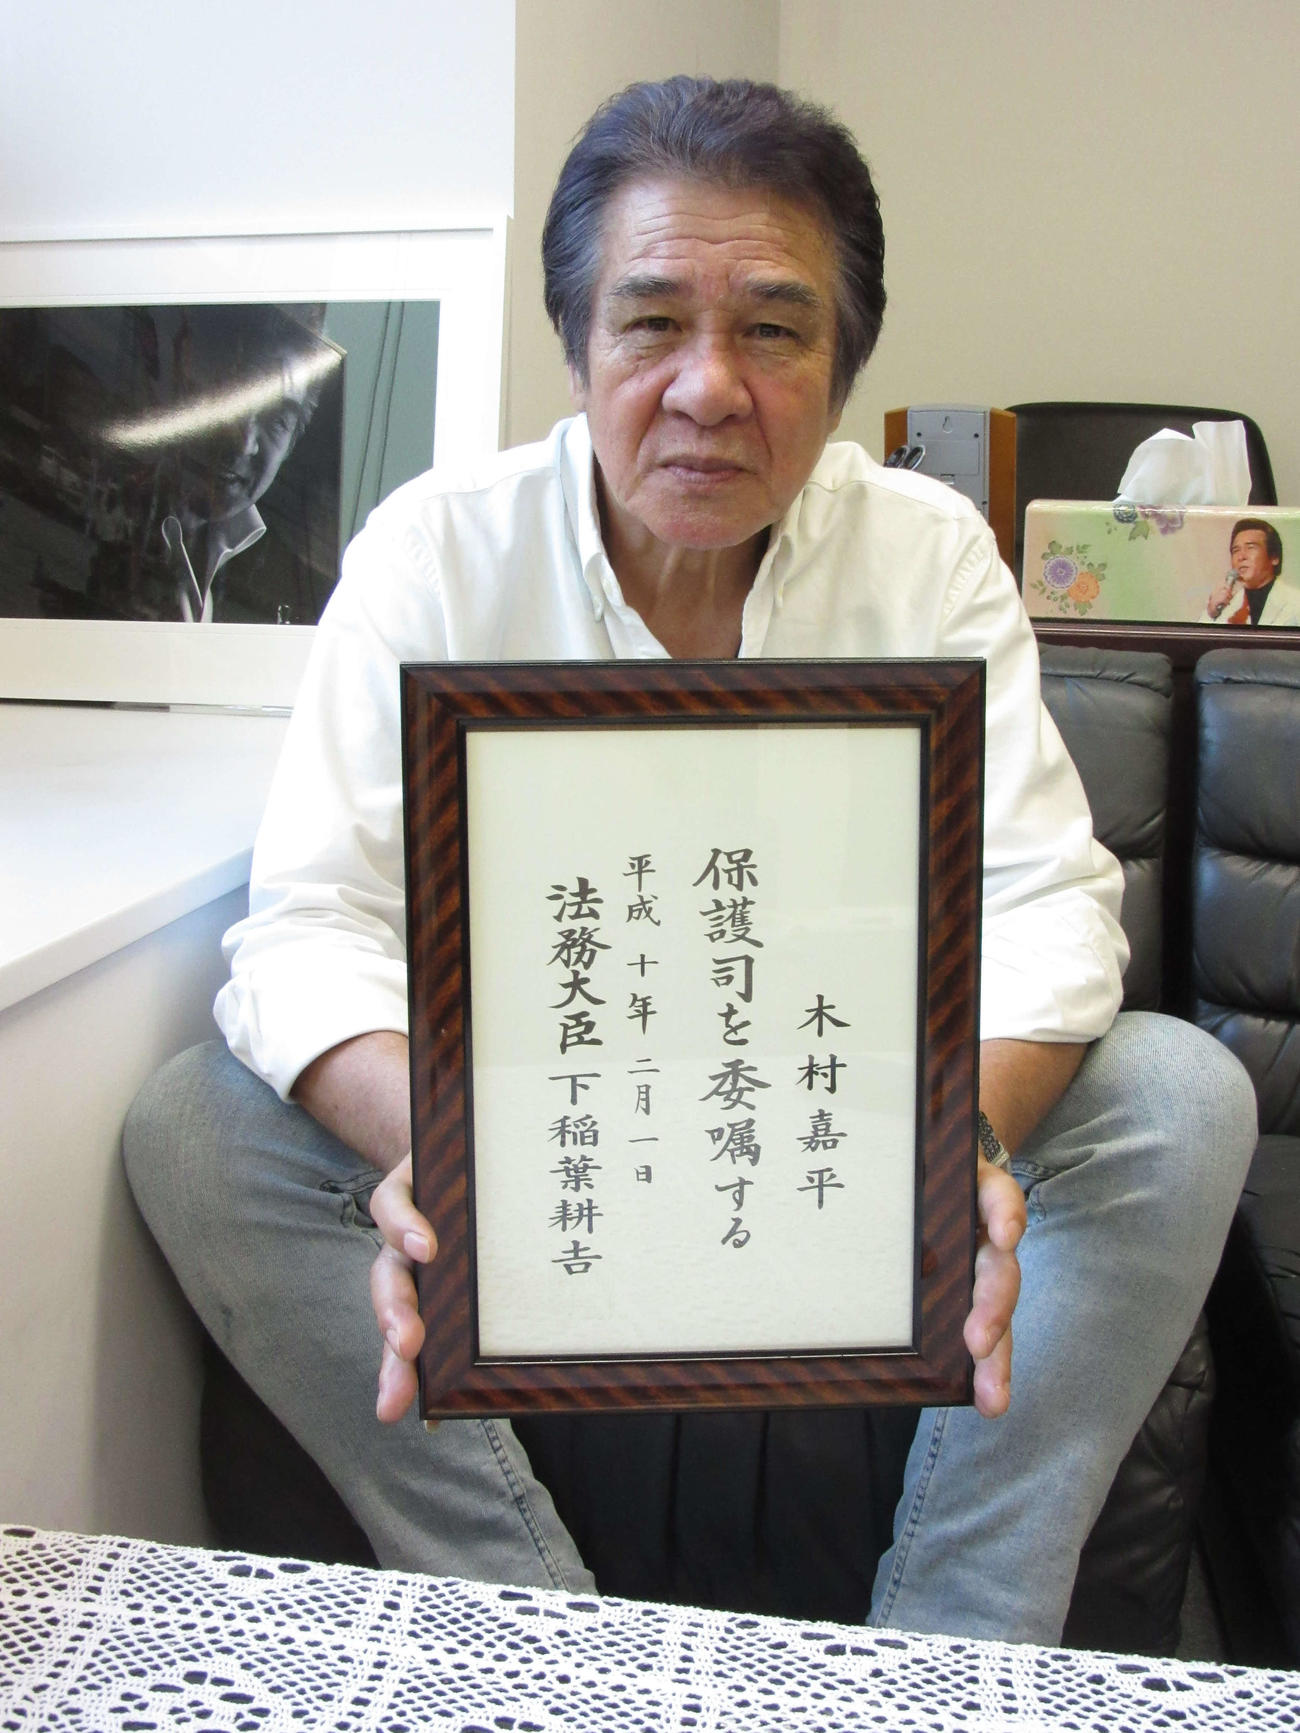 木村嘉平
保護司を委嘱する
平成十年二月一日
法務大臣 下稲葉耕吉